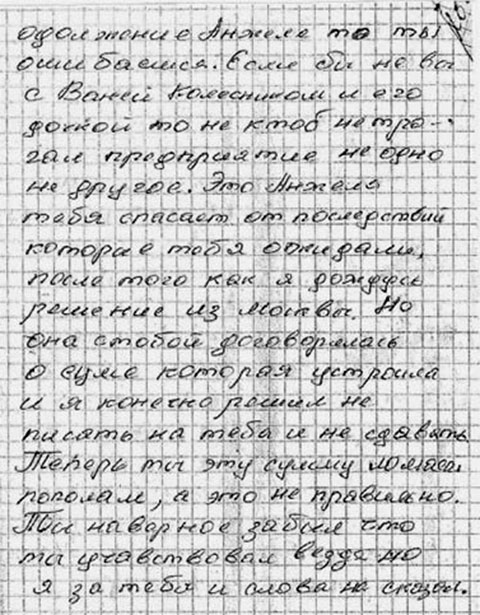 одолжение Анжеле то ты
ошибаешся. Если бы не вы
с Ваней Колесником и его
дочкой то не ктоб не тро-
гал предприятие не одно
не другое. Это Анжела
тебя спасает от последствий
которые тебя ожидали,
после того как я дождусь
решение из Москвы. Но
она стобой договорялась
о суме которая устроила
и я конечно решил не
писать на тебя и не сдавать
Теперь ты эту сумму ломаеш
пополам, а это не правильно.
Ты наверное забыл что
ты учавствовал везде но
я за тебя и слова не сказал.